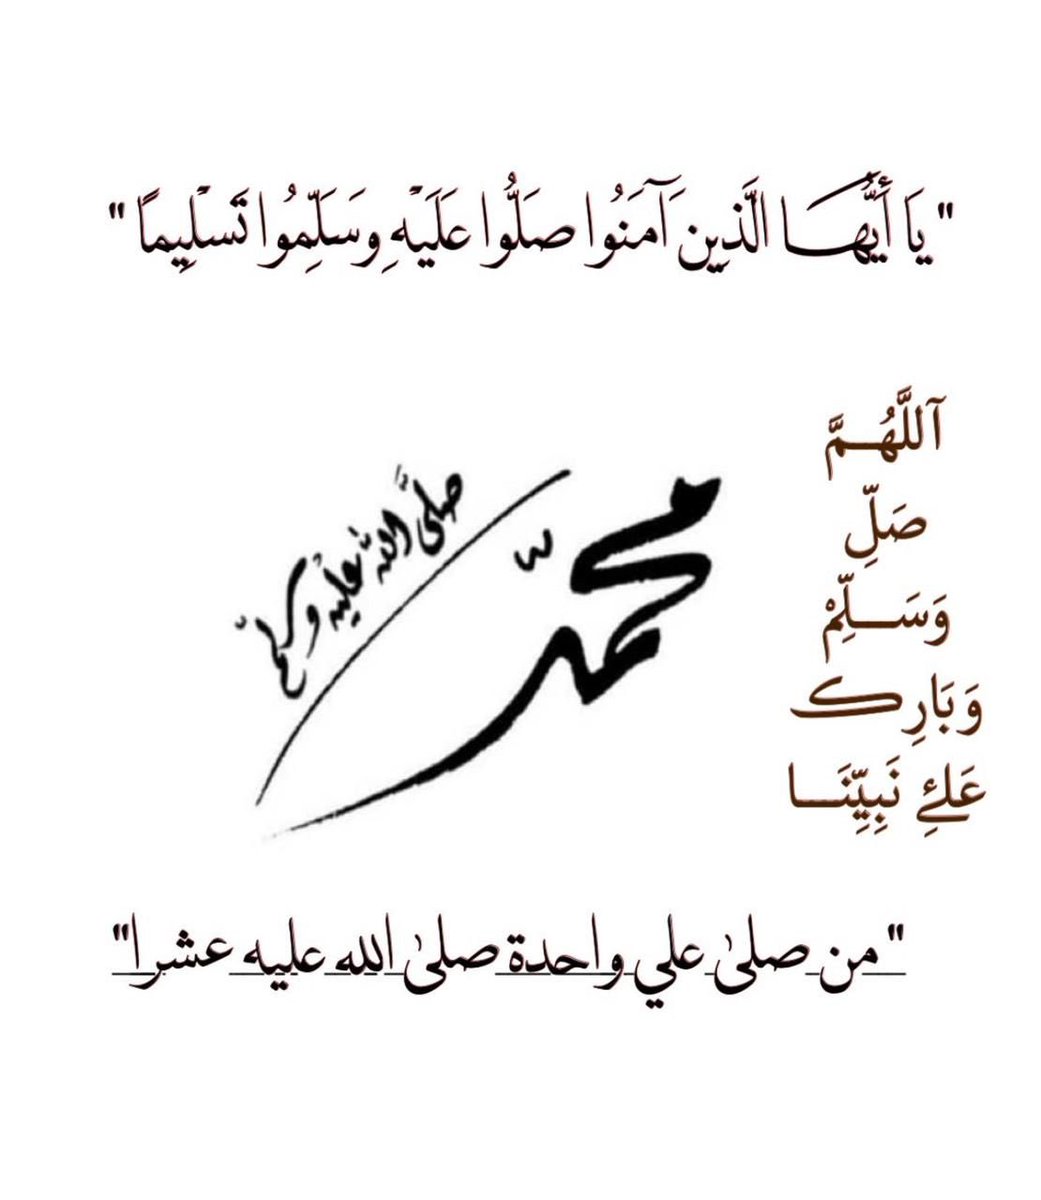 " يَا أَيُّهَا الَّذِينَ آمَنُوا صَلُّوا عَلَيْهِ وَسَلِّمُوا تَسْلِيمًا "
آللَّهُمَّ
صَلِّ
وَسَلِّمْ
وَبَارِك
عَلـﮯِ نَبِيِّنَا
محمّد
صلَّى اللّٰه عليْه وسلّم
" من صلىٰ علي واحدة صلىٰ الله عليه عشرا"